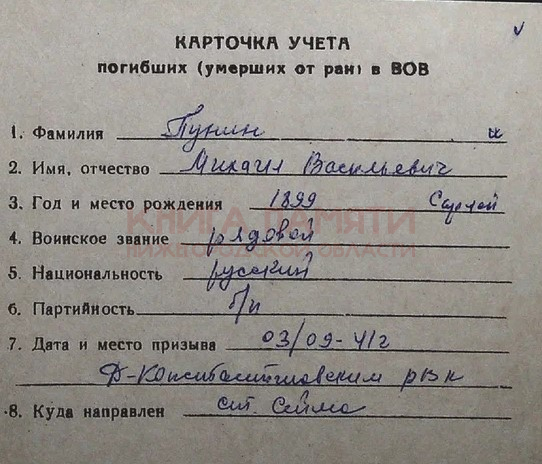 КАРТОЧКА УЧЕТА
погибших (умерших от ран) в ВОВ
1. Фамилия Пунин
2. Имя, отчество Михаил Васильевич
3. Год и место рождения 1899 Сарлей
КНИГА ПАМЯТИ
4. Воинское звание рядовой
НИЖЕГОРОДСКОЙ ОБЛАСТИ
5. Национальность русский
6. Партийность б/п
7. Дата и место призыва 03/09-41г
Д-Константиновским рвк
8. Куда направлен ст. Сейма